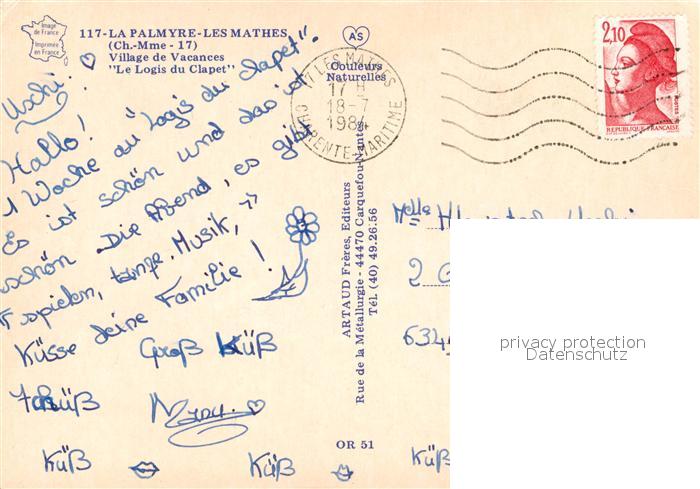 Image
de France
Imprimée
en France
117-LA PALMYRE-LES MATHES
(Ch.-Mme - 17)
Village de Vacances
"Le Logis du Clapet"
AS
Couleurs
Naturelles
17 LES MATHES
17 H
18-7
1984
CHARENTE-MARITIME
2,10
POSTES
REPUBLIQUE FRANÇAISE
Uschi
Hallo!
1 Woche au "Logis du Clapet".
Es ist schön und das ist
schön. Die Abend, es gibt
spielen, tanze, Musik,
Küsse deine Familie!
Groß Küß
Küß
Manu.
Küß
Küß
Küß
ARTAUD Frères, Editeurs
Rue de la Métallurgie - 44470 Carquefou-Nantes
Tél. (40) 49.26.56
OR 51
Melle
2
privacy protection
Datenschutz